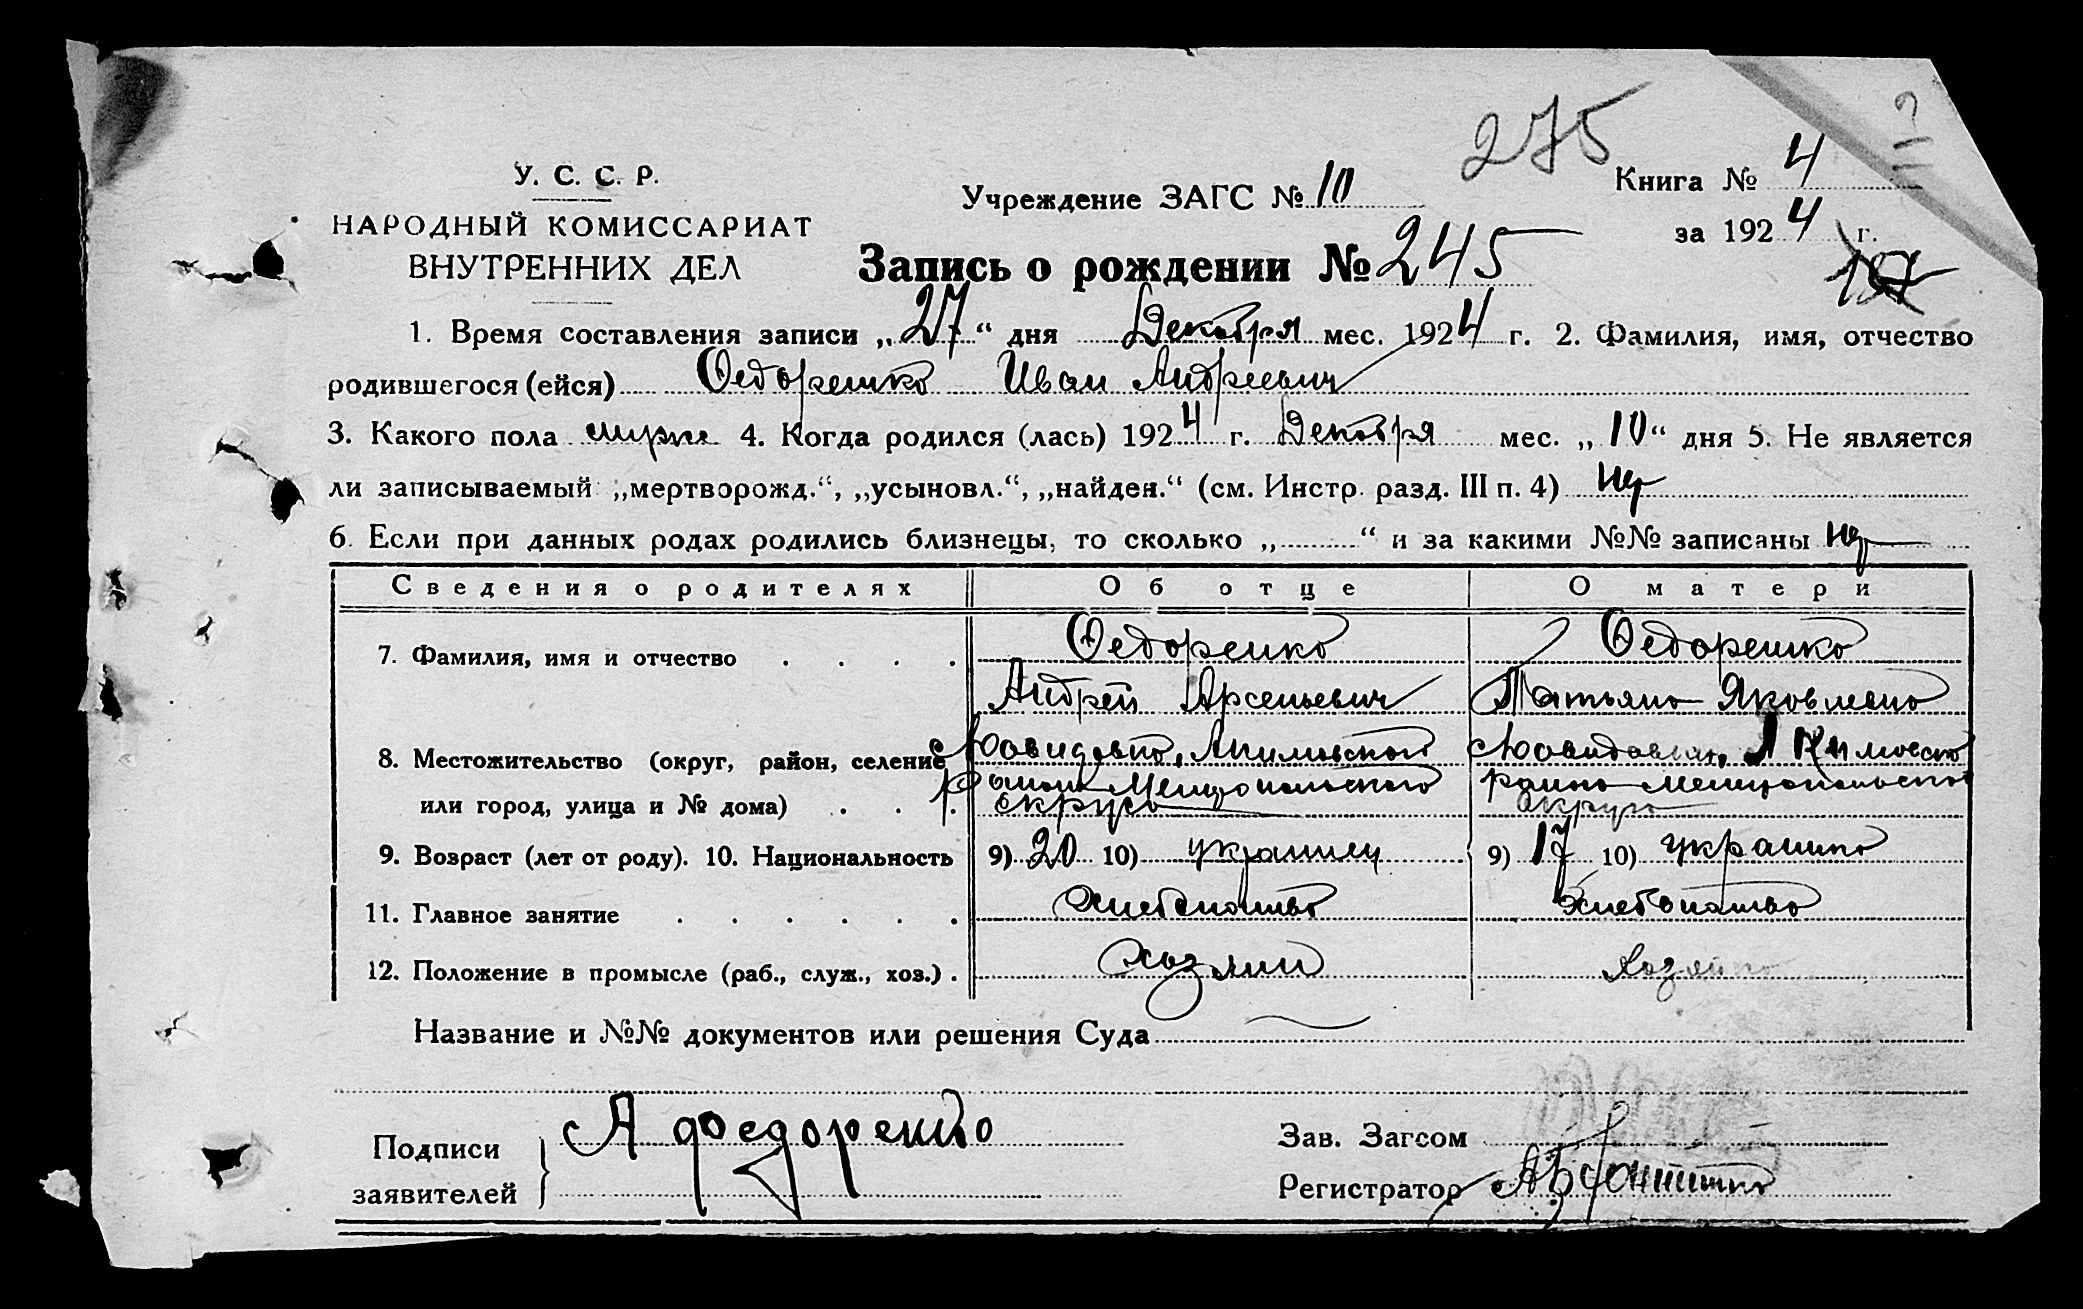 275
У. С. С. Р.
НАРОДНЫЙ КОМИССАРИАТ
ВНУТРЕННИХ ДЕЛ
Учреждение ЗАГС № 10
Книга № 4
за 1924 г.
Запись о рождении № 245
1. Время составления записи „27“ дня Декабря мес. 1924 г. 2. Фамилия, имя, отчество
родившегося (ейся) Федоренко Иван Андреевич
3. Какого пола 4. Когда родился (лась) 1924 г. Декабря мес. „10“ дня 5. Не является
ли записываемый „мертворожд.“, „усыновл.“, „найден.“ (см. Инстр. разд. III п. 4) нет
6. Если при данных родах родились близнецы, то сколько „ “ и за какими №№ записаны нет
Сведения о родителях Об отце О матери
7. Фамилия, имя и отчество . . . . Федоренко Федоренко
Андрей Арсеньевич Татьяна Яковлевна
8. Местожительство (округ, район, селение Акимовского Акимовского
или город, улица и № дома) . . . района Мелитопольского района Мелитопольского
округа округа
9. Возраст (лет от роду). 10. Национальность 9) 20 10) украинец 9) 17 10) украинка
11. Главное занятие . . . . . . Хлебопашество Хлебопашество
12. Положение в промысле (раб., служ., хоз.) . хозяин хозяйка
Название и №№ документов или решения Суда
Подписи
заявителей
А Федоренко
Зав. Загсом
Регистратор